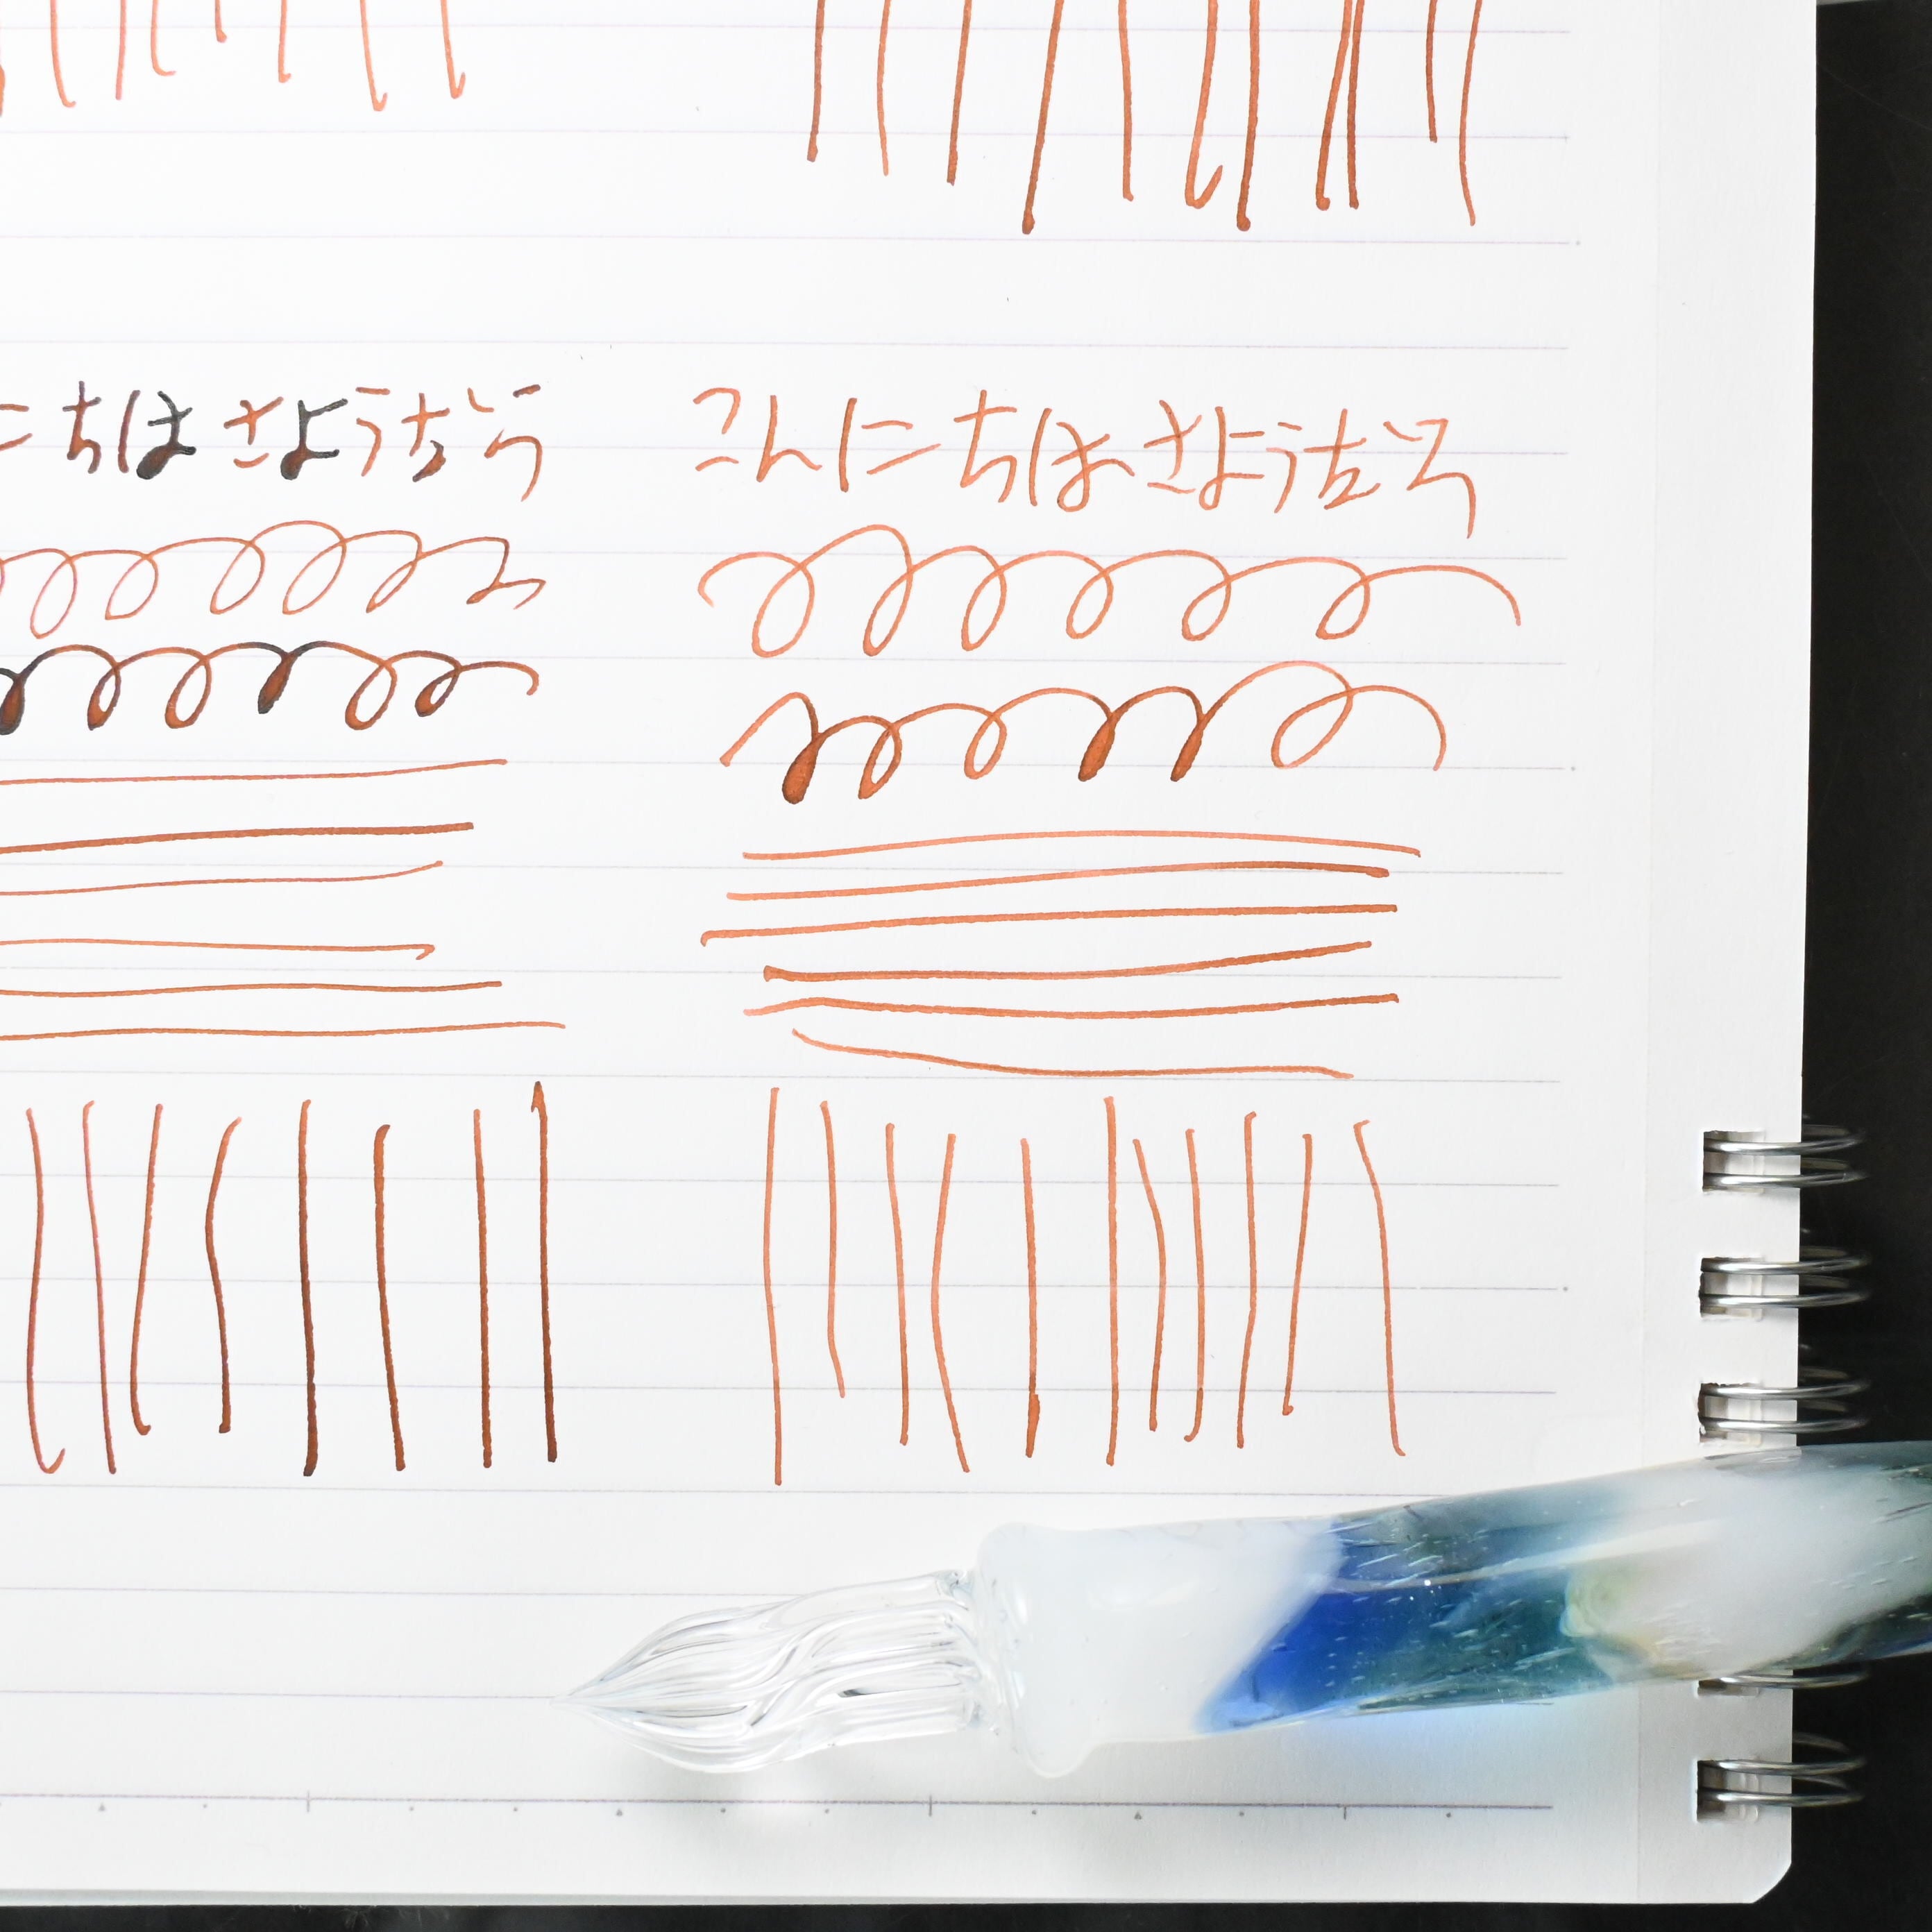 にちは さようなら
こんにちは さようなら